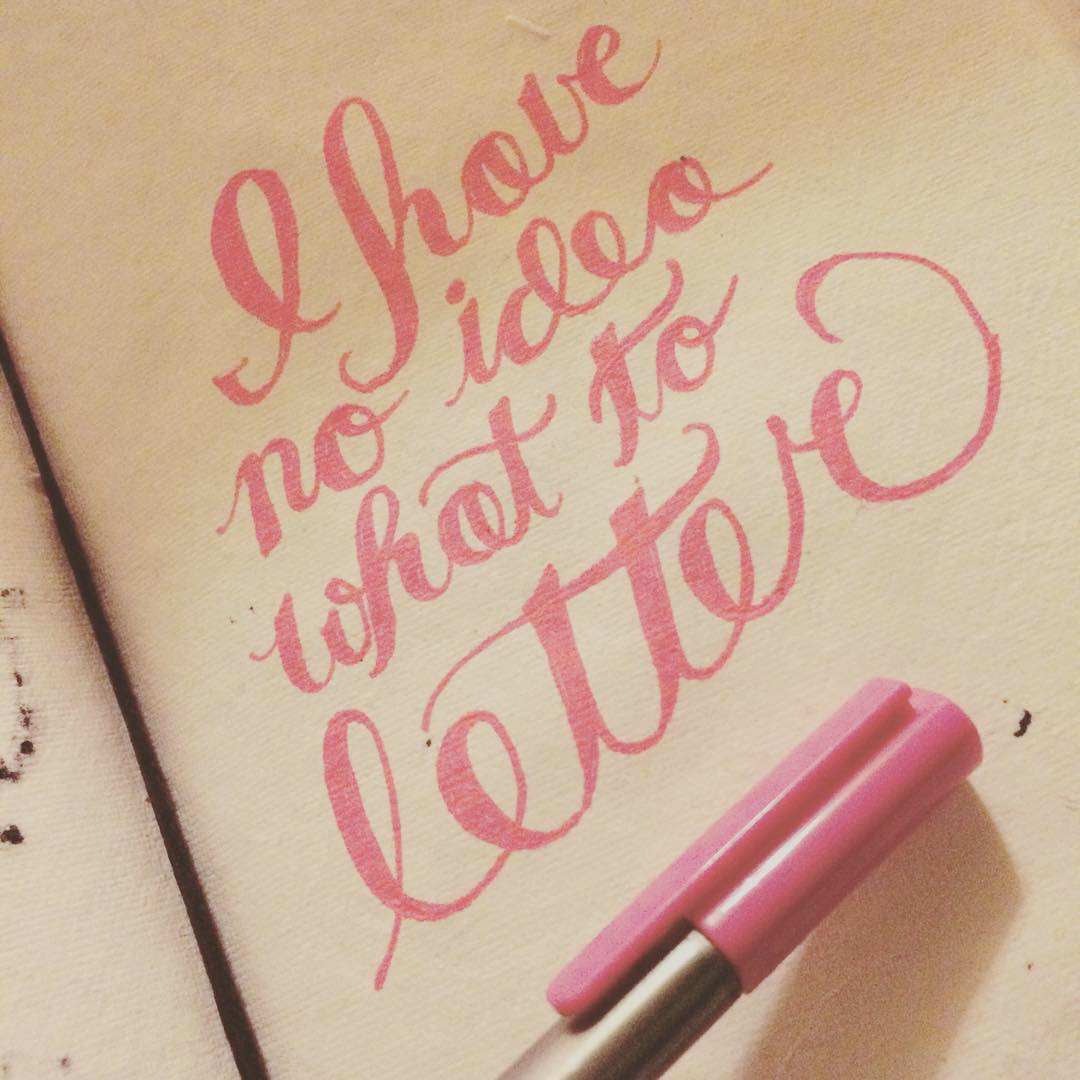 I have
no idea
what to
letter